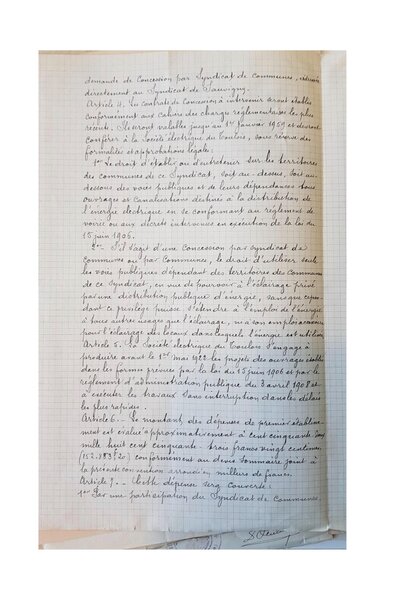 demande de Concession par Syndicat de Communes, adressée
directement au Syndicat de Sauvigny.
Article 4. Les contrats de Concession à intervenir seront établis
conformément aux Cahiers des charges réglementaires les plus
récents. Ils seront valables jusqu'au 1er Janvier 1969 et devront
conférer à la Société électrique du Toulois, sous réserve des
formalités et approbations légales:
1er Le droit d'établir ou d'entretenir sur les territoires
des communes de ce Syndicat, soit au-dessus, soit au-
dessous des voies publiques et de leurs dépendances tous
ouvrages et Canalisations destinés à la distribution de
l'énergie électrique en se conformant au règlement de
voirie ou aux décrets intervenus en exécution de la loi du
15 juin 1906.
S'il s'agit d'une Concession par Syndicat de
Communes ou par Communes, le droit d'utiliser seule
les voies publiques dépendant des territoires des Communes
de ce Syndicat, en vue de pourvoir à l'éclairage privé
par une distribution publique d'énergie, sans que cepen
dant ce privilège puisse s'étendre à l'emploi de l'énergie
à tous autres usages que l'éclairage, ni à son emploi accessoire
pour l'éclairage des locaux dans lesquels l'énergie est utilisée
Article 5. La Société électrique du Toulois s'engage à
produire avant le 1er Mai 1922 les projets des ouvrages établis
dans les formes prévues par la loi du 15 juin 1906 et par le
règlement d'administration publique du 3 avril 1908 et
à exécuter les travaux sans interruption dans les délais
les plus rapides.
Article 6.- Le montant des dépenses de premier établisse-
ment est évalué approximativement à cent cinquante deux
mille huit cent cinquante trois francs vingt centimes
conformément au devis sommaire joint à
la présente convention arrondi en milliers de francs.
Article 7.- Cette dépense sera couverte:
1er Par une participation du Syndicat de Communes